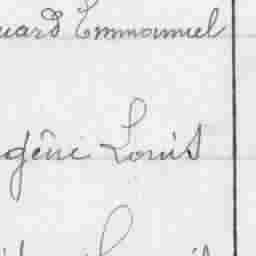 uard Emmanuel
gène Louis